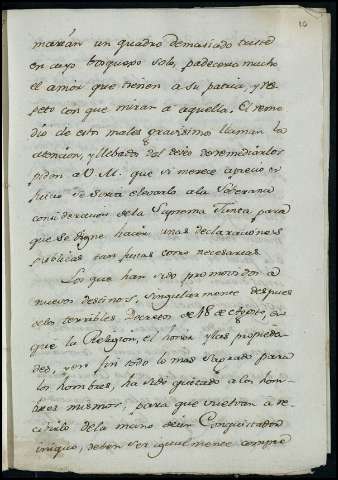 10
marían un quadro demasiado triste
en cuyo bosquexo solo, padeceria mucho
el amor que tienen a su patria, y res
peto con que miran a aquella. El reme
dio de estos males gravisimos llaman la
atencion, y llebados del deseo de remediarlos
piden a V.M. que si merece aprecio su
juicio se sirva elevarlo a la Soberana
consideracion de la Suprema Junta, para
que se digne hacer unas declaraciones
publicas tan justas como necesarias.
Los que han sido promovidos a
nuevos destinos, singularmente despues
de los terribles Decretos de 18 de Agosto, en
que la Religion, el honor y las propieda-
des, y en fin todo lo mas sagrado para
los hombres, ha sido quitado a los hom-
bres mismos, para que vuelvan a re-
cibirlo de la mano de un Conquistador
iniquo, deben ser igualmente compre